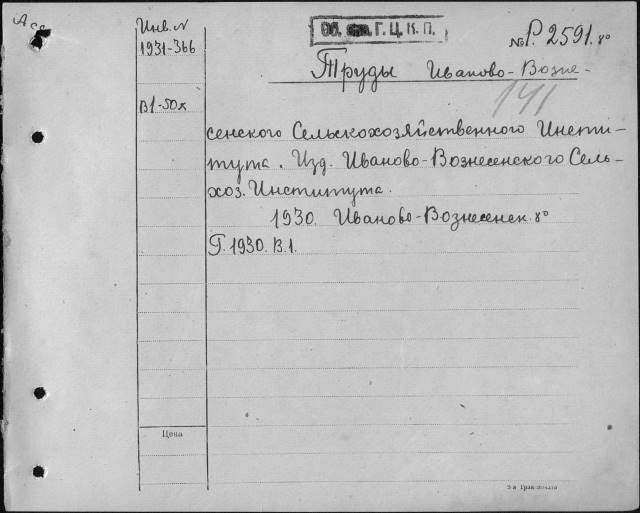 Асс
Инв. N
1931-366
В1-50к
Г. Ц. К. П.
№ Р. 2591. 8°
Труды Иваново-Возне-
141
сенского Сельскохозяйственного Инсти-
тута. Изд. Иваново-Вознесенского Сель-
хоз. Института.
1930. Иваново-Вознесенск. 8°
Г. 1930. В. 1.
Цена